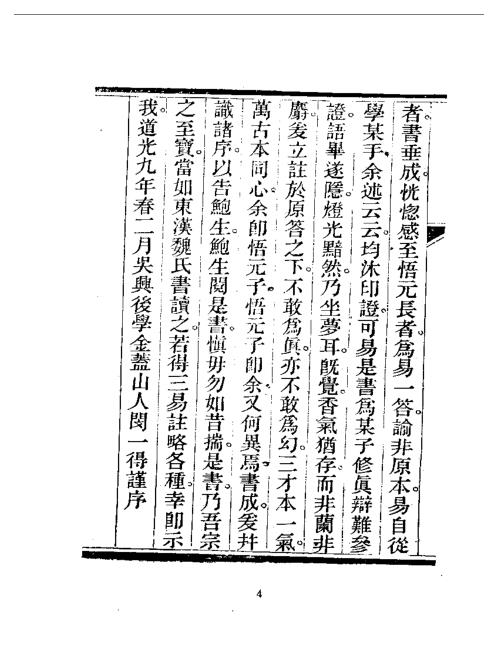 者。書垂成。恍惚感至悟元長者。爲易一答。諭非原本。易自從
學某手。余述云云。均沐印證。可易是書爲某子修眞辯難參
證。語畢遂隱。燈光黯然。乃坐夢耳。旣覺。香氣猶存。而非蘭非
麝。爰立註於原答之下。不敢爲眞。亦不敢爲幻。三才本一氣。
萬古本同心。余卽悟元子。悟元子卽余。又何異焉。書成。爰幷
識諸序。以告鮑生。鮑生閱是書。愼毋勿如昔揣。是書。乃吾宗
之至寶。當如東漢魏氏書讀之。若得三易註略各種。幸卽示
我。道光九年春二月吳興後學金蓋山人閔一得謹序
4